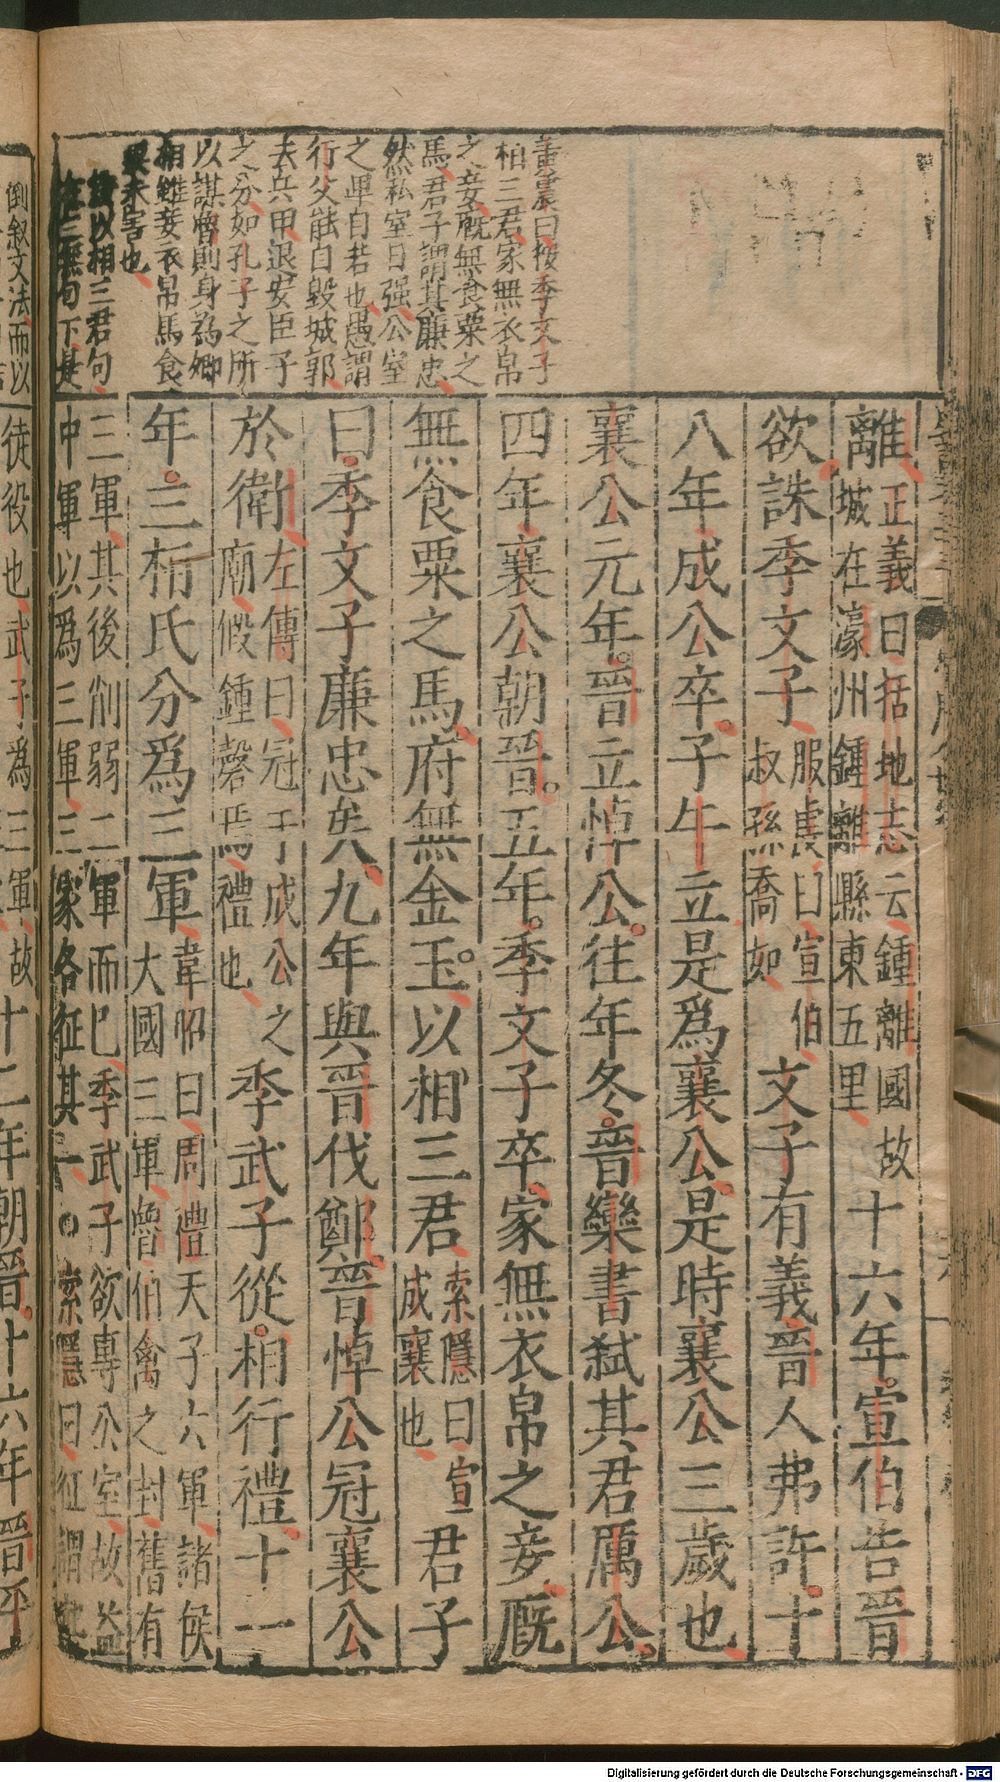 董份曰按季文子
相三君家無衣帛
之妾廐無食粟之
馬君子謂其廉忠
然私室日强公室
之卑自若也愚謂
行父能自毀城郭
去兵甲退安臣子
之分如孔子之所
以謀魯則身為卿
相雖妾衣帛馬食
粟未害也
以相三君句
三無句下是
離 正義曰括地志云鍾離國故
城在濠州鍾離縣東五里 十六年宣伯告晉
欲誅季文子 服虔曰宣伯
叔孫喬如 文子有義晉人弗許十
八年成公卒子午立是爲襄公是時襄公三歲也
襄公元年晉立悼公往年冬晉欒書弑其君厲公
四年襄公朝晉五年季文子卒家無衣帛之妾廐
無食粟之馬府無金玉以相三君 索隱曰宣
成襄也 君子
曰季文子廉忠矣九年與晉伐鄭晉悼公冠襄公
於衛 左傳曰冠于成公之
廟假鍾磬焉禮也 季武子從相行禮十一
年三桓氏分爲三軍 韋昭曰周禮天子六軍諸侯
大國三軍魯伯禽之封舊有
三軍其後削弱二軍而巳季武子欲專公室故益
中軍以爲三軍三家各征其一○索隱曰征謂
倒叙文法而以
徒役也武子爲三軍故十二年朝晉十六年晉平
Digitalisierung gefördert durch die Deutsche Forschungsgemeinschaft - DFG